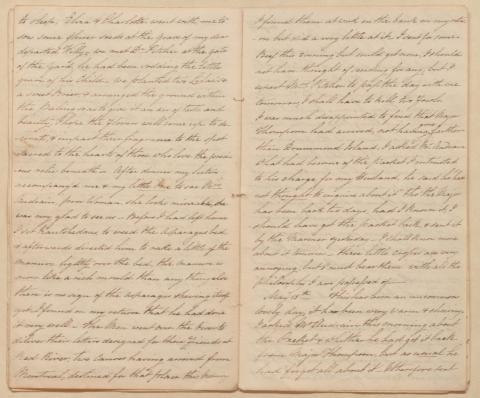 to sleep, Eliza & Charlotte went with me to
sow some flower seeds at the grave of my dear
departed Willy, we met Mr. at the gate
of the yard, he had been sodding the little
grave of his Child. We planted two
a sweet Briar & arranged the ground within
the Railing so as to give it an air of taste and
beauty. I hope the flowers will come up to de-
corate, & impart their fragrance to the spot
sacred to the hearts of those who love the preci-
ous relic beneath. After dinner my Sisters
accompany'd me & my little to see Mrs.
poor Woman she looks miserable, she
was very glad to see us. Before I had left home
I set to weed the Asparagus bed
& afterwards directed him to make a little of the
manure lightly over the bed, the manure is
more like a rich mould than any thing else
there is no sign of the asparagus shewing itself
yet. I found on my return that he had done
it very well. The Men went over the river to
deliver their letters designed for their friends at
Red River, two Canoes having arrived from
Montreal, destined for that place this morn,
I found them at work on the bank on my return
but did a very little at it. I sent for some
Beef this evening but could get none, I should
not have thought of sending for any, but I
expect Mrs. to pass the day with me
tomorrow, I shall have to kill two fowls.
I was much disappointed to find that Major
Thompson had arrived, not having gone farther
than Drummond Island. I asked Mr.
what had become of the Packet I intrusted
to his charge for my Husband, he said he had
not thought to enquire about it tho' the Major
has been back two days, had I known it, I
should have got the packet back & sent it
by the Mariner yesterday. I shall know more
about it tomorrow. these little crosses are very
annoying, but I must bear them with all the
philosophy I am possessed of.
May 15th. This has been an uncommon
lovely day, it has been very warm & shining,
I asked Mr. this morning about
the Packet & whether he had got it back
from Major Thompson, but as usual he
had forgot all about it. I therefore sent